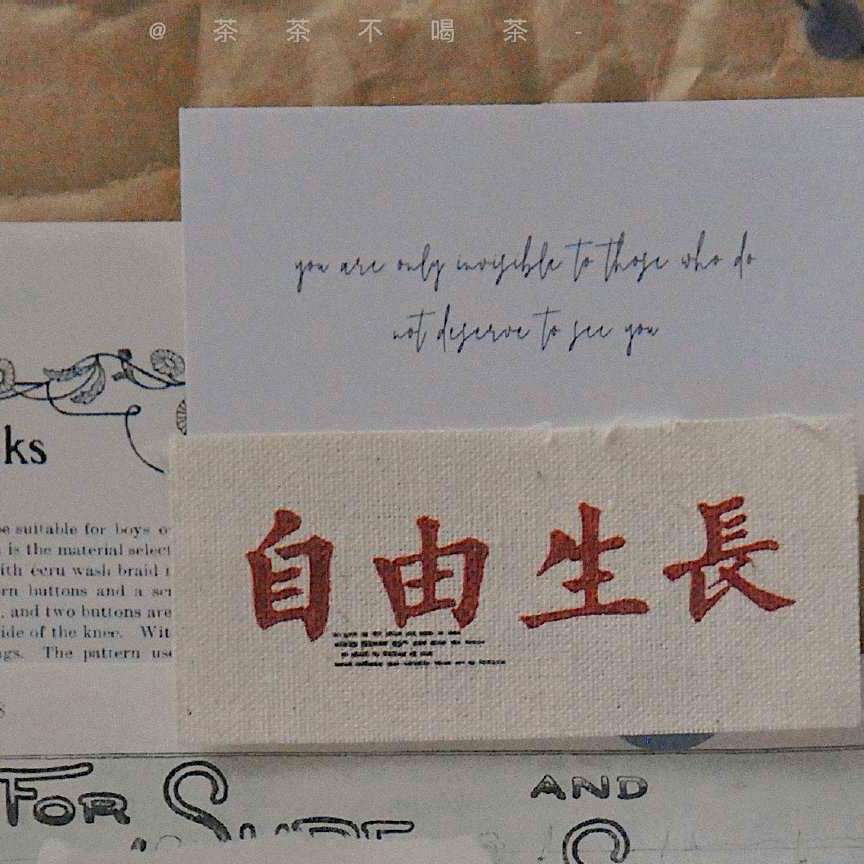 @茶茶不喝茶-
you are only invisible to those who do
not deserve to see you
ks
be suitable for boys o
is the material select
ith ecru wash braid t
rn buttons and a
, and two buttons are
ide of the knee. Wit
gs. The pattern use
自由生長
FOR
AND